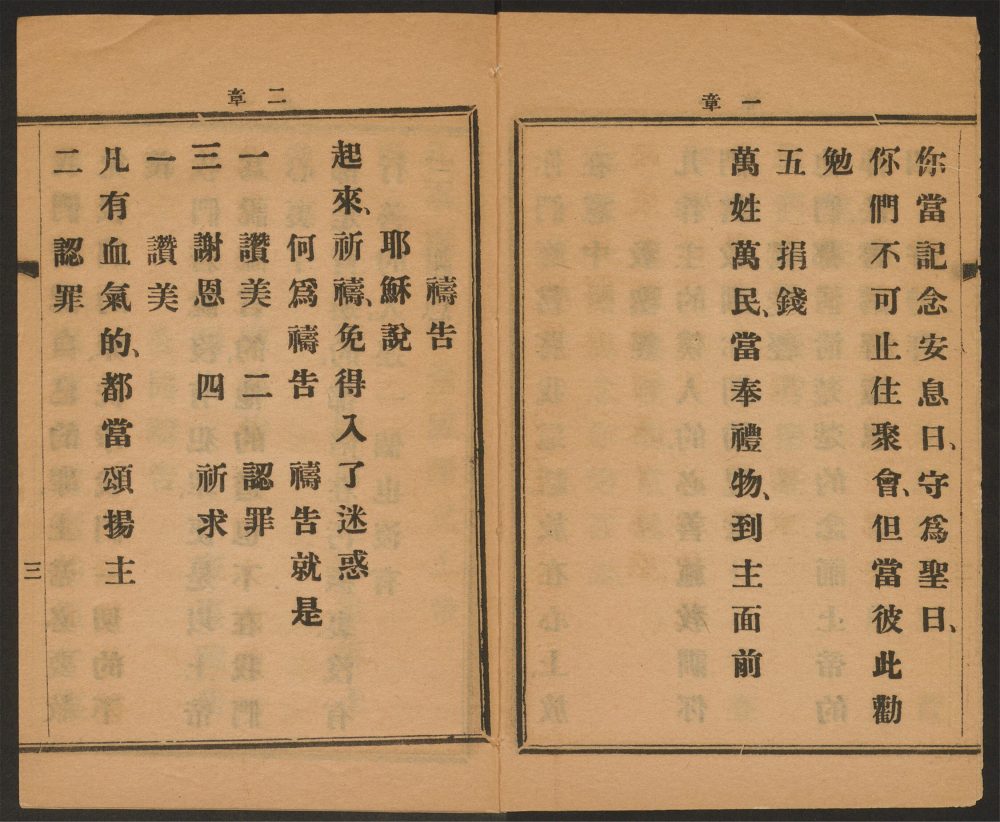 章一
你當記念安息日、守爲聖日、
你們不可止住聚會、但當彼此勸
勉
五 捐錢
萬姓萬民、當奉禮物、到主面前
章二
禱告
耶穌說
起來、祈禱、免得入了迷惑
何爲禱告 禱告就是
一 讚美 二 認罪
三 謝恩 四 祈求
一 讚美
凡有血氣的、都當頌揚主
二 認罪
三